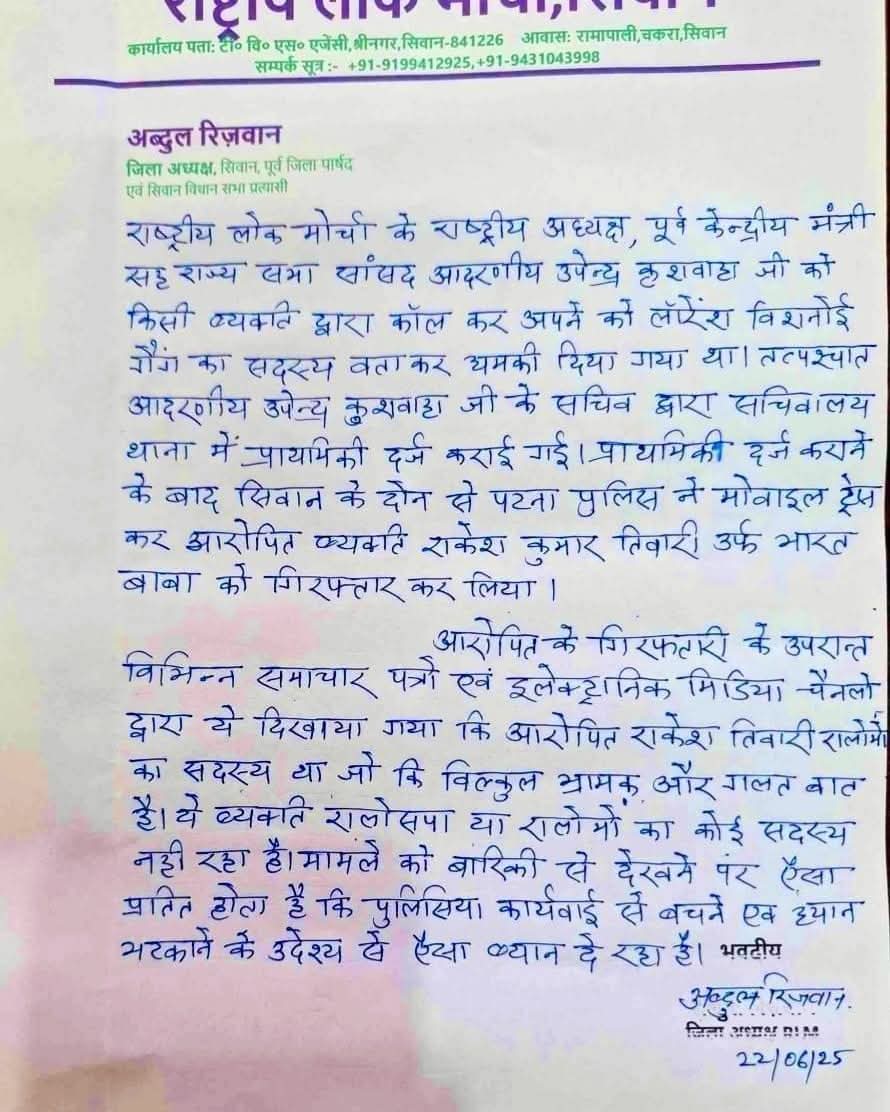 राष्ट्रीय लोक मोर्चा,सिवान
कार्यालय पता: टी० वि० एस० एजेंसी,श्रीनगर,सिवान-841226 आवास: रामापाली,चकरा,सिवान
सम्पर्क सूत्र :- +91-9199412925,+91-9431043998
अब्दुल रिज़वान
जिला अध्यक्ष, सिवान, पूर्व जिला पार्षद
एवं सिवान विधान सभा प्रत्यासी
राष्ट्रीय लोक मोर्चा के राष्ट्रीय अध्यक्ष, पूर्व केन्द्रीय मंत्री
सह राज्य सभा सांसद आदरणीय उपेन्द्र कुशवाहा जी को
किसी व्यक्ति द्वारा कॉल कर अपने को लॉरेंश विशनोई
गैंग का सदस्य बताकर धमकी दिया गया था। तत्पश्चात
आदरणीय उपेन्द्र कुशवाहा जी के सचिव द्वारा सचिवालय
थाना में प्राथमिकी दर्ज कराई गई। प्राथमिकी दर्ज कराने
के बाद सिवान के दोन से पटना पुलिस ने मोबाइल ट्रेस
कर आरोपित व्यक्ति राकेश कुमार तिवारी उर्फ भारत
बाबा को गिरफ्तार कर लिया।
आरोपित के गिरफ्तारी के उपरान्त
विभिन्न समाचार पत्रो एवं इलेक्ट्रानिक मिडिया चैनलो
द्वारा ये दिखाया गया कि आरोपित राकेश तिवारी रालोमो
का सदस्य था जो कि बिल्कुल भ्रामक और गलत बात
है। ये व्यक्ति रालोसपा या रालोमो का कोई सदस्य
नही रहा है। मामले को बारिकी से देखने पर ऐसा
प्रतित होता है कि पुलिसिया कार्यवाई से बचने एव ध्यान
भटकाने के उदेश्य से ऐसा ब्यान दे रहा है। भवदीय
अब्दुल रिजवान
जिला अध्यक्ष RLM
22/06/25